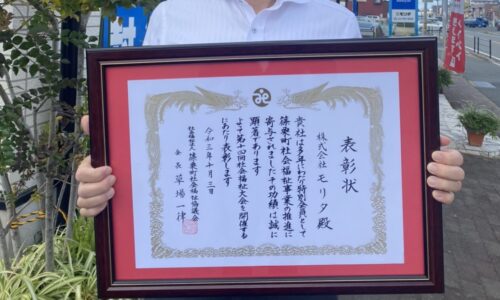 表彰状
株式会社 モリタ殿
貴社は多年にわたり特別会員として
篠栗町社会福祉事業の推進に
寄与されましたその功績は誠に
顕著であります
よって第十四回社会福祉大会を開催する
にあたり表彰します
令和三年十月三日
社会福祉法人 篠栗町社会福祉協議会
会長 草場一律